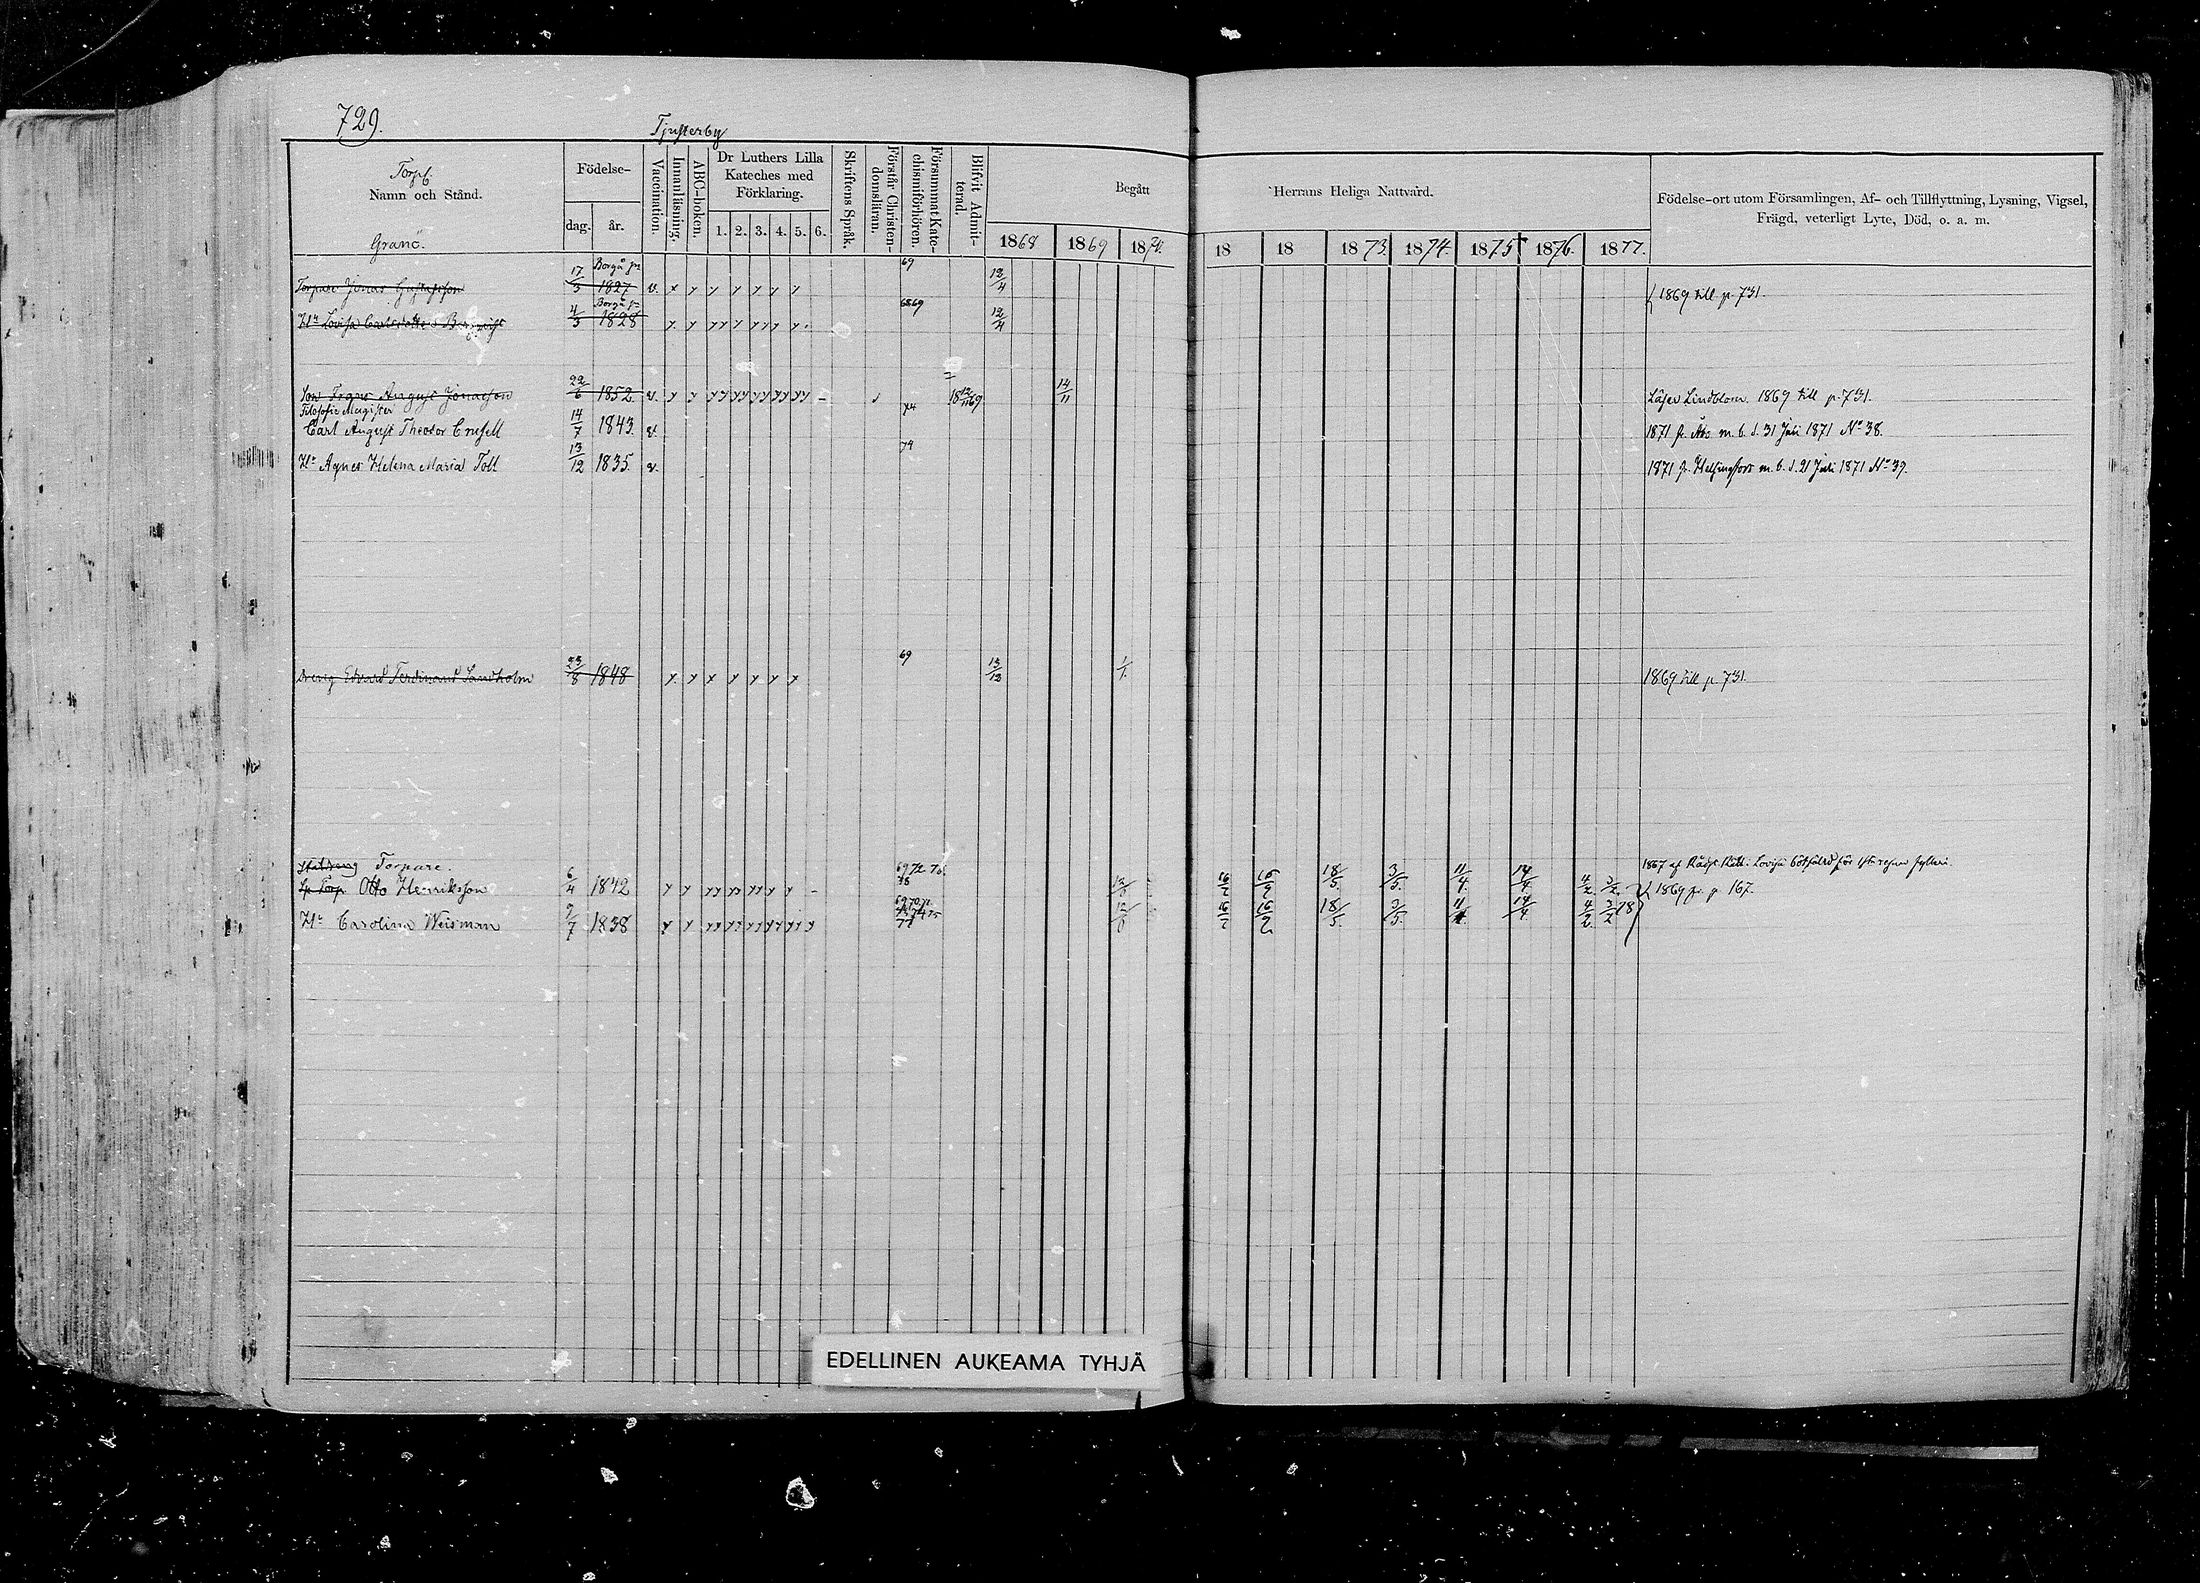 729.
Tjusterby
Torp.
Namn och Stånd.
Födelse-
dag. år.
Vaccination.
Innanläsning.
ABC-boken.
Dr Luthers Lilla Kateches med Förklaring.
1. 2. 3. 4. 5. 6.
Skriftens Språk.
Förstår Christendomsläran.
Försummat Katechismiförhören.
Blifvit Admitterad.
Begått Herrans Heliga Nattvard.
1868 1869 18 18 18 1873. 1874. 1875 1876. 1877.
Födelse-ort utom Församlingen, Af- och Tillflyttning, Lysning, Vigsel,
Frägd, veterligt Lyte, Död, o. a. m.
Granö.
Torpare Jonas Gustafsson 17/3 Borgå 1827 v. 69 12/4 1869 till p. 731.
H:u Lovisa Carlsdotter 4/3 Borgå 1828 6869 12/4
Son Frans August Jonasson 22/6 1852 v. 18 12/11 69 14/11 Läser Lindblom. 1869 till p. 731.
Filosofie Magister
Carl August Theodor Crusell 14/7 1843. v. 74 1871 fr. Åbo m. b. d. 31 Juli 1871 No 38.
H:u Agnes Helena Maria Toll 13/12 1835. v. 74 1871 fr. Helsingfors m. b. d. 21 Juli 1871 No 39.
Dreng Edvard Ferdinand Sandholm 23/8 1848 69 13/12 1/1. 1869 till p. 731.
Torpare. 69 72 1867 af Lovisa för
Otto Henriksson 6/4 1842 16/9 18/5. 3/5. 11/4. 14/4. 4/2. 3/2. 1869 fr. p. 167.
H:u Carolina Weisman 9/7 1838 16/9 18/5. 3/5. 11/4. 14/4 4/2. 3/2 18
EDELLINEN AUKEAMA TYHJÄ